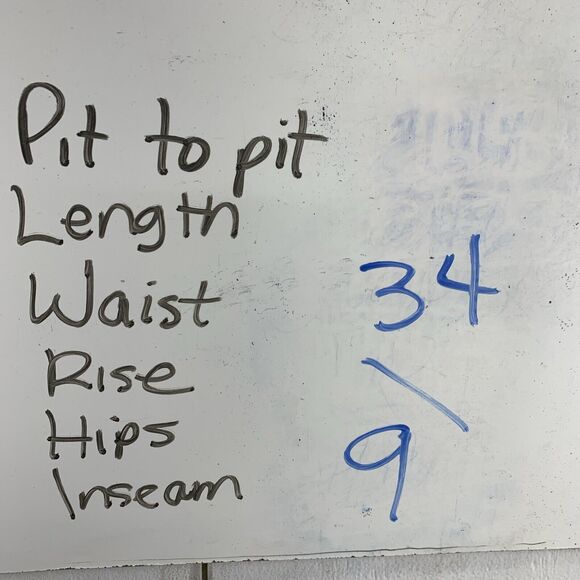 Pit to pit
Length
Waist 34
Rise \
Hips
Inseam 9